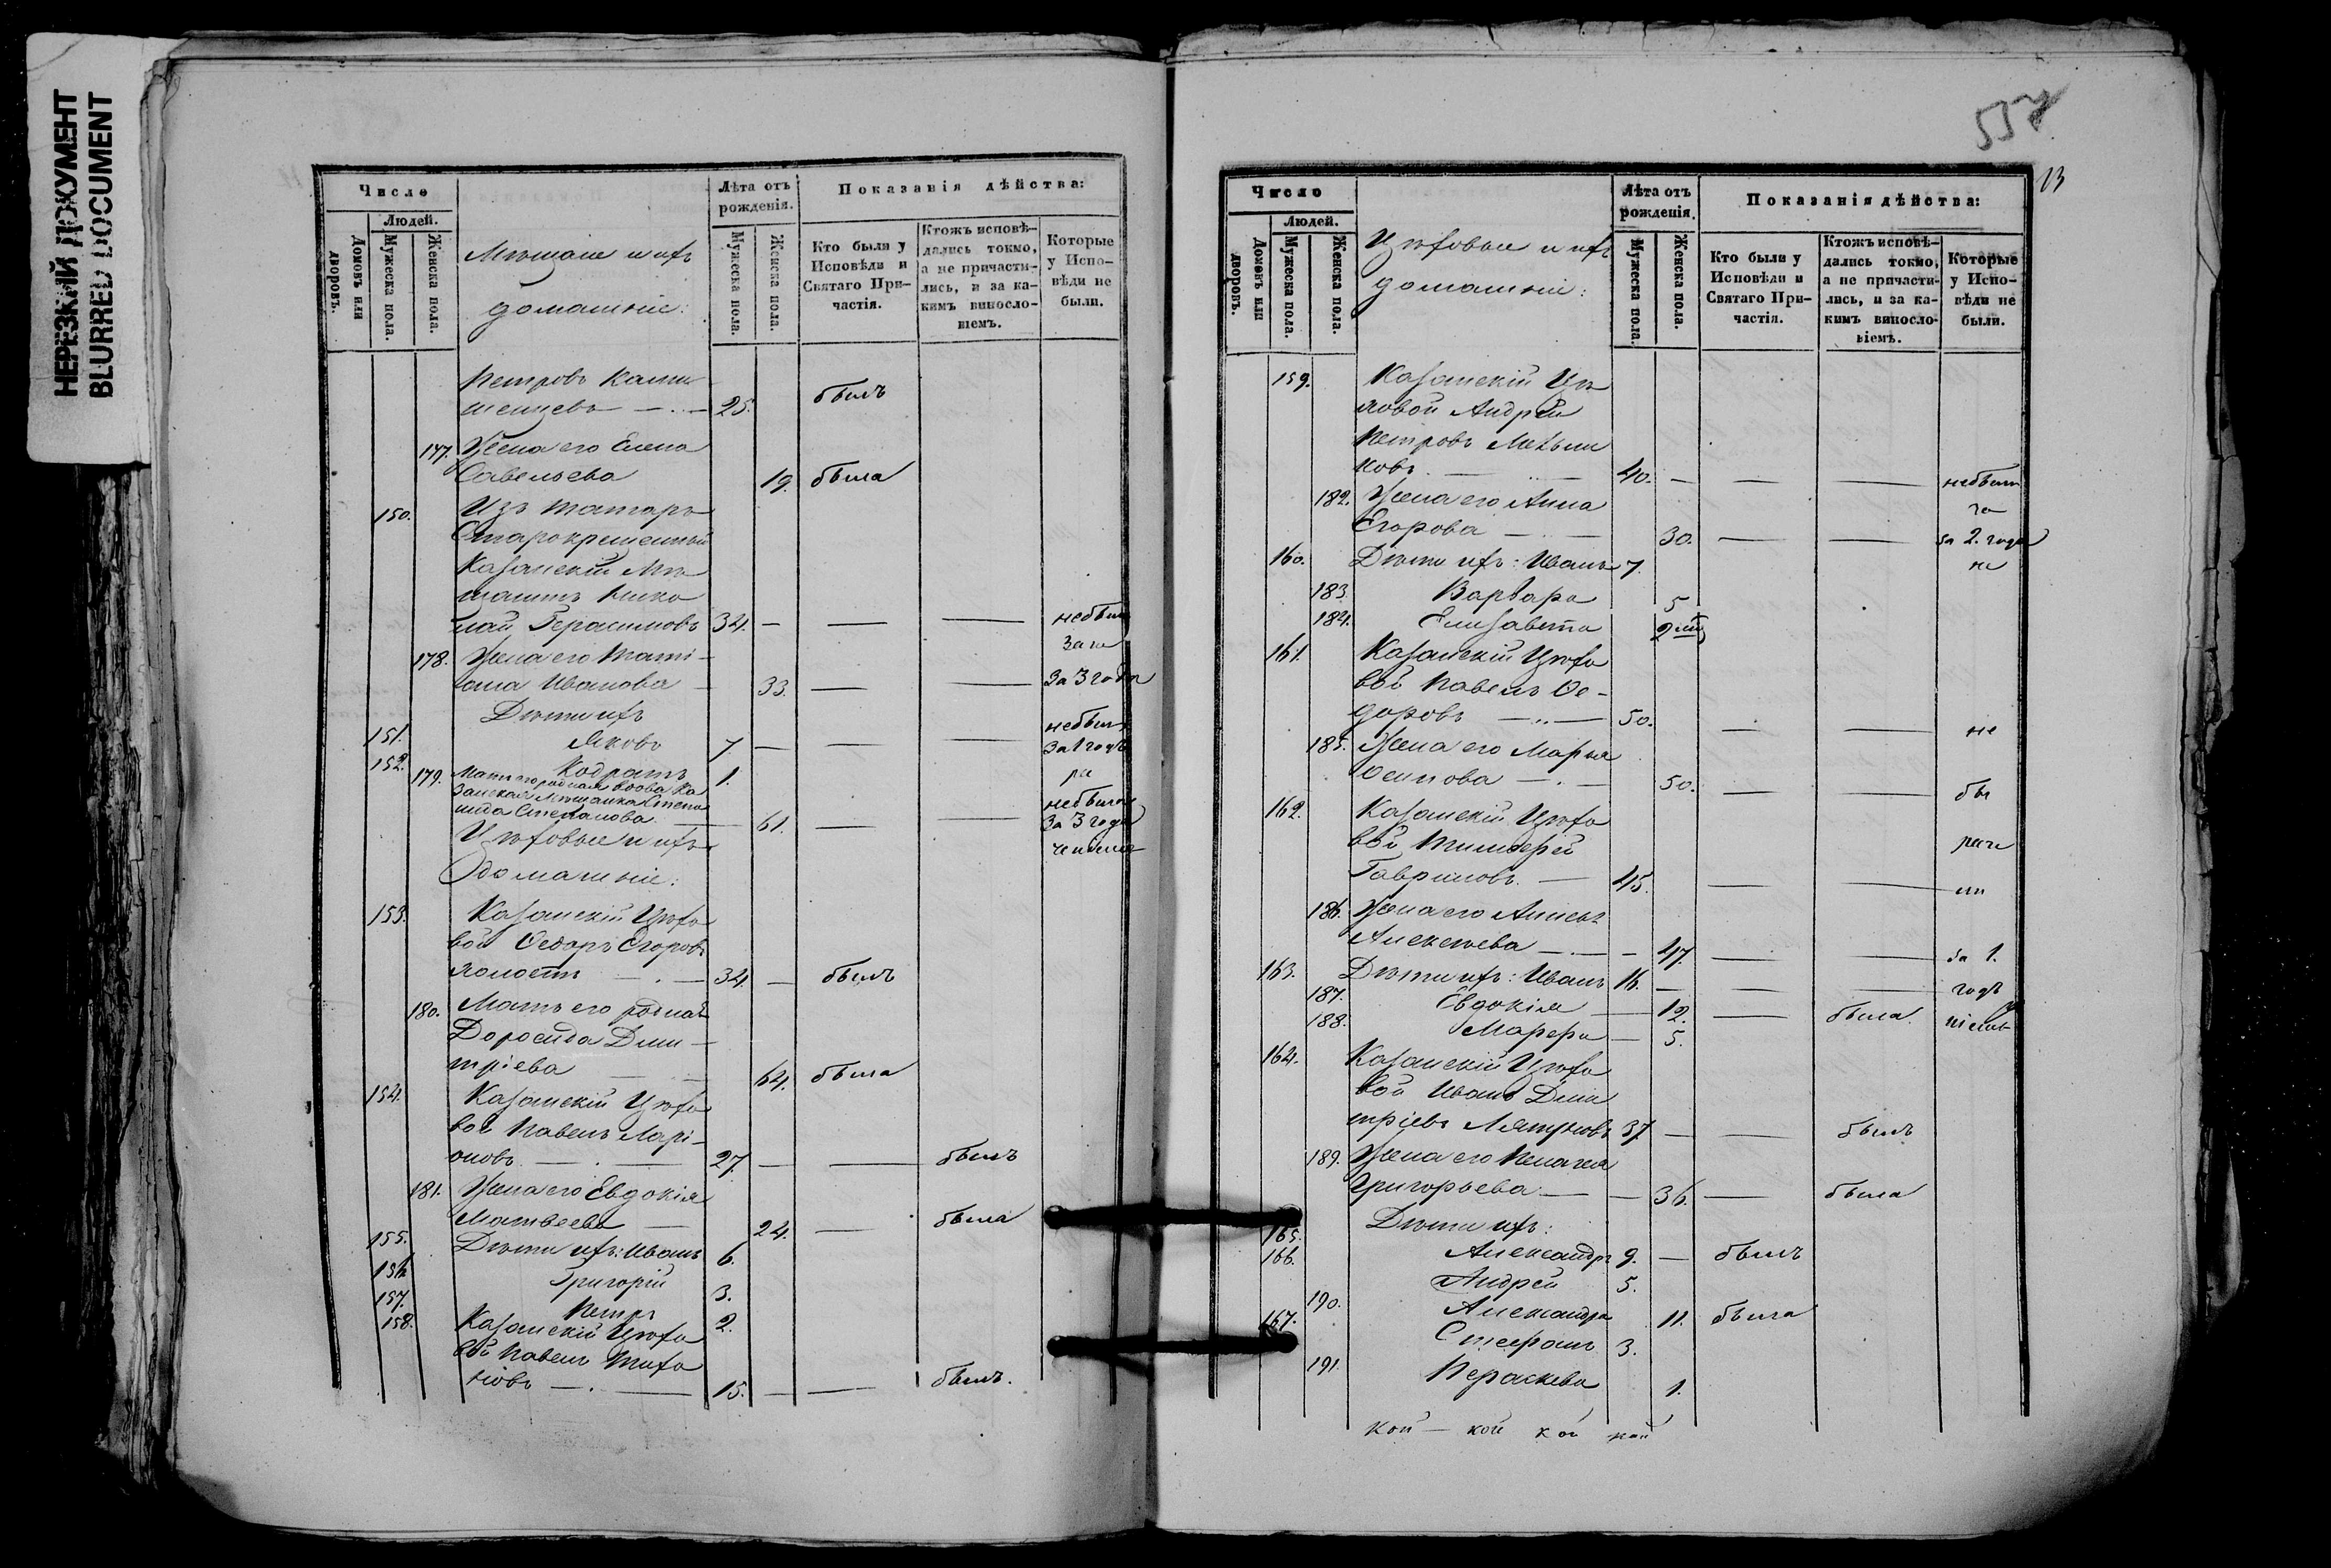 НЕРЕЗКИЙ ДОКУМЕНТ
BLURRED DOCUMENT
Число
Людей.
Домовъ или дворовъ.
Мужеска пола.
Женска пола.
Мѣщане и ихъ
домашніе:
Лѣта отъ рожденія.
Мужеска пола.
Женска пола.
Показанія дѣйства:
Кто были у Исповѣди и Святаго Причастія.
Ктожъ исповѣ-
дались токмо,
а не причасти-
лись, и за ка-
кимъ винословіемъ.
Которые
у Испо-
вѣди не
были.
Петровъ
25. былъ
177. Жена его Елена
Савельева 19. была
150. Изъ татаръ
Старокрещенный
Казанскій Мѣ
щанинъ Нико
лай Герасимовъ 34. — — — небыли
178. Жена его Татi-
яна Иванова — 33. — — за 3 года
Дѣти ихъ
151. Яковъ 7. — — —
152. Кодратъ 1.
179. Мать его родная вдова Ка
занская Мѣщанка Степа
нида Степанова — 61. — — небыла
за 3 года
Цѣховые и ихъ
домашніе:
153. Казанскій Цѣхо
вой Ѳедоръ Егоровъ
— 34. — былъ
180. Мать его родная
Дороѳида Дми-
тріева 64. была
154. Казанскій Цѣхо
вой Павелъ Ларі-
оновъ — 27. — — былъ
181. Жена его Евдокія
Матвеева — 24. — была
155. Дѣти ихъ: Иванъ 6.
156. Григорій 3.
157. Петръ 2.
158. Казанскій Цѣхо
вой Павелъ Тихо
новъ — 15. — — былъ.
537
13
Число
Людей.
Домовъ или дворовъ.
Мужеска пола.
Женска пола.
Цѣховые и ихъ
домашніе:
Лѣта отъ рожденія.
Мужеска пола.
Женска пола.
Показанія дѣйства:
Кто были у Исповѣди и Святаго Причастія.
Ктожъ исповѣ-
дались токмо,
а не причасти-
лись, и за ка-
кимъ винословіемъ.
Которые
у Испо-
вѣди не
были.
159. Казанскій Цѣ
ховой Андрей
Петровъ Мельни
ковъ — 40. — — — небыли
182. Жена его Анна
Егорова — 30. — — за 2. года
160. Дѣти ихъ: Иванъ 7.
183. Варвара 5
184. Елизавета 2
161. Казанскій Цѣхо
вой Павелъ Ѳе-
доровъ — 50. — — не
185. Жена его Марья
Осипова — 50. — — бы
162. Казанскій Цѣхо
вой Тимофей
Гавриловъ — 45. — — ли
186. Жена его
Алексѣева — 47. — — за 1.
163. Дѣти ихъ: Иванъ 16. — — — годъ
187. Евдокія — 12. — была.
188. Марфа — 5.
164. Казанскій Цѣхо
вой Иванъ Дми
тріевъ 37 — — былъ
189. Жена его Пелагея
Григорьева — 36. — была
Дѣти ихъ:
165. Александръ 9. — былъ
166. Андрей 5.
190. Александра 11. была
167. Стефанъ 3.
191. Параскева 1.
кой — кой кой кой